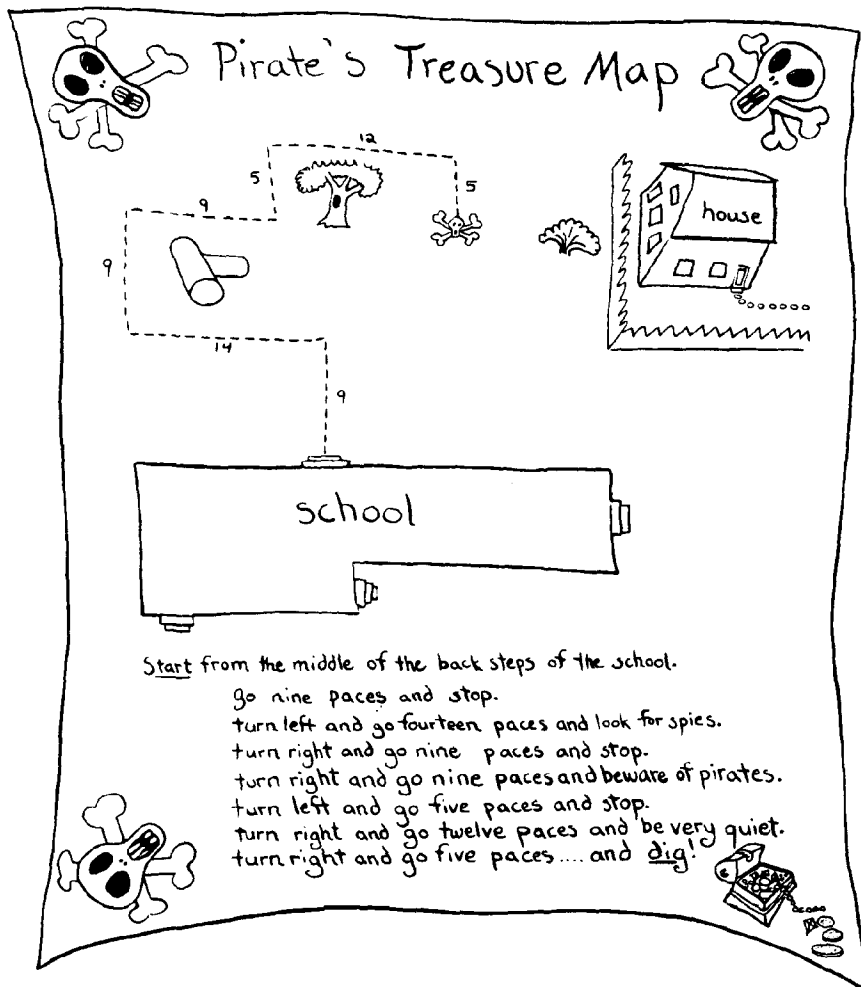 Pirate's Treasure Map
12
5
5
9
house
9
14
9
school
Start from the middle of the back steps of the school.
go nine paces and stop.
turn left and go fourteen paces and look for spies.
turn right and go nine paces and stop.
turn right and go nine paces and beware of pirates.
turn left and go five paces and stop.
turn right and go twelve paces and be very quiet.
turn right and go five paces.... and dig!